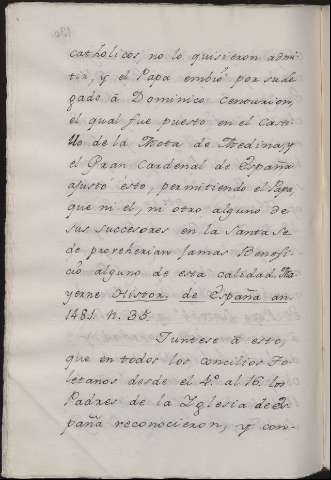 catholicos no lo quisieron admi-
tir, y el Papa embió por su de
gado â Dominico Cenourion,
el qual fue puesto en el Casti
llo de la Mota de Medina, y
el Gran Cardenal de España
afustó esto, permitiendo el Papa,
que ni el, ni otro alguno de
sus successores en la Santa Se
de proveherian Jamas Benefi-
ció alguno de esta calidad. Ma
yerne Histor. de España an.
1481. n. 35.
Juntese â esto,
que en todos los concilios To-
letanos desde el 4º. al 16. los
Padres de la Yglesia de Es
paña reconocieron, y con-